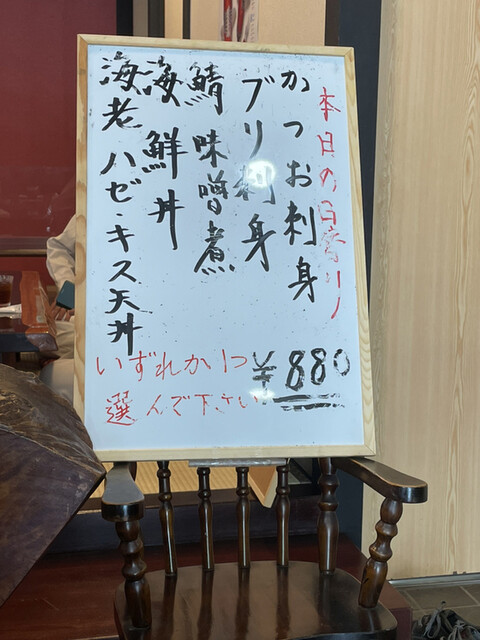 本日の日替り
かつお刺身
ブリ刺身
鯖味噌煮
海鮮丼
海老ハゼ・キス天丼
いずれか1つ
選んで下さい
¥880